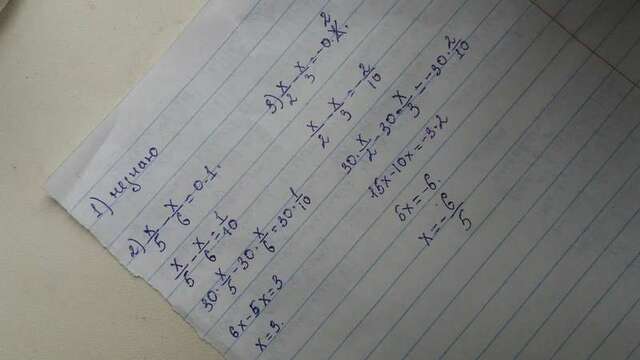 1) не знаю
2) x/5 - x/6 = 0.1.
x/5 - x/6 = 1/10
30·x/5 - 30·x/6 = 30·1/10
6x - 5x = 3
x = 3.
3) x/2 - x/3 = -0.2
x/2 - x/3 = -2/10
30·x/2 - 30·x/3 = -30·2/10
15x - 10x = -3·2
5x = -6.
x = -6/5